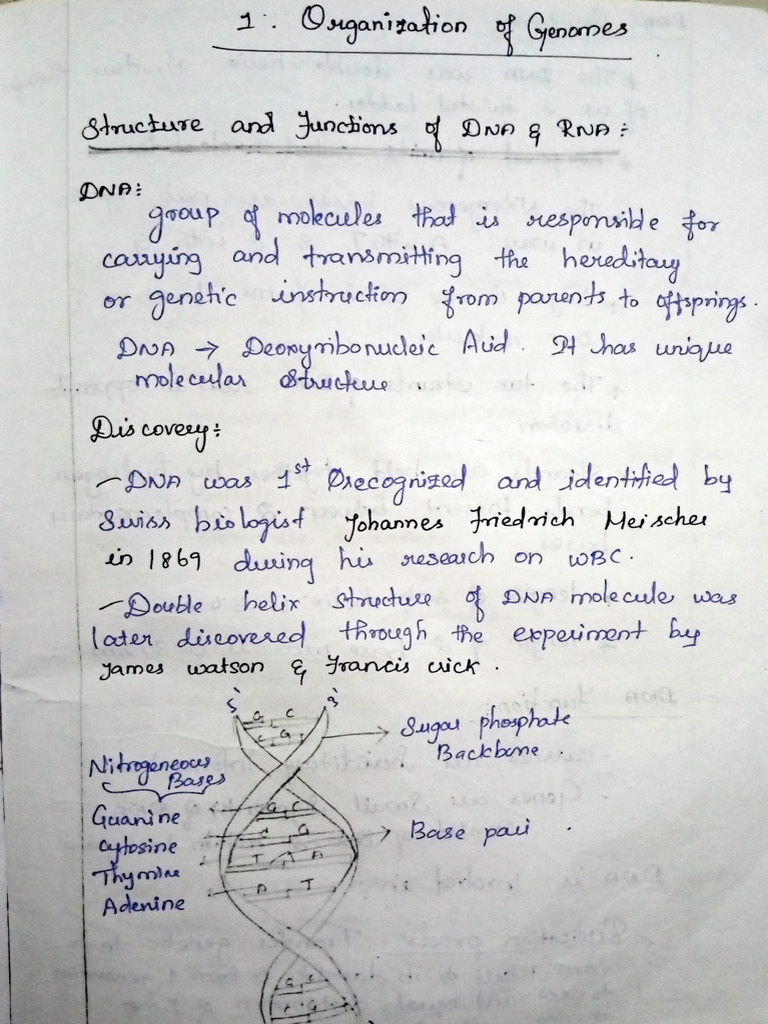 1. Organization of Genomes
Structure and Functions of DNA & RNA:
DNA:
group of molecules that is responsible for
carrying and transmitting the hereditary
or genetic instruction from parents to offsprings.
DNA → Deoxyribonucleic Acid. It has unique
molecular structure.
Discovery:
- DNA was 1st recognized and identified by
Swiss biologist Johannes Friedrich Meischer
in 1869 during his research on WBC.
- Double helix structure of DNA molecule was
later discovered through the experiment by
James Watson & Francis Crick.
5' 3'
G C
C G
Sugar phosphate
Backbone.
Nitrogeneous
Bases
Guanine
Cytosine
Thymine
Adenine
G C
C G
T A
A T
Base pair.
G C